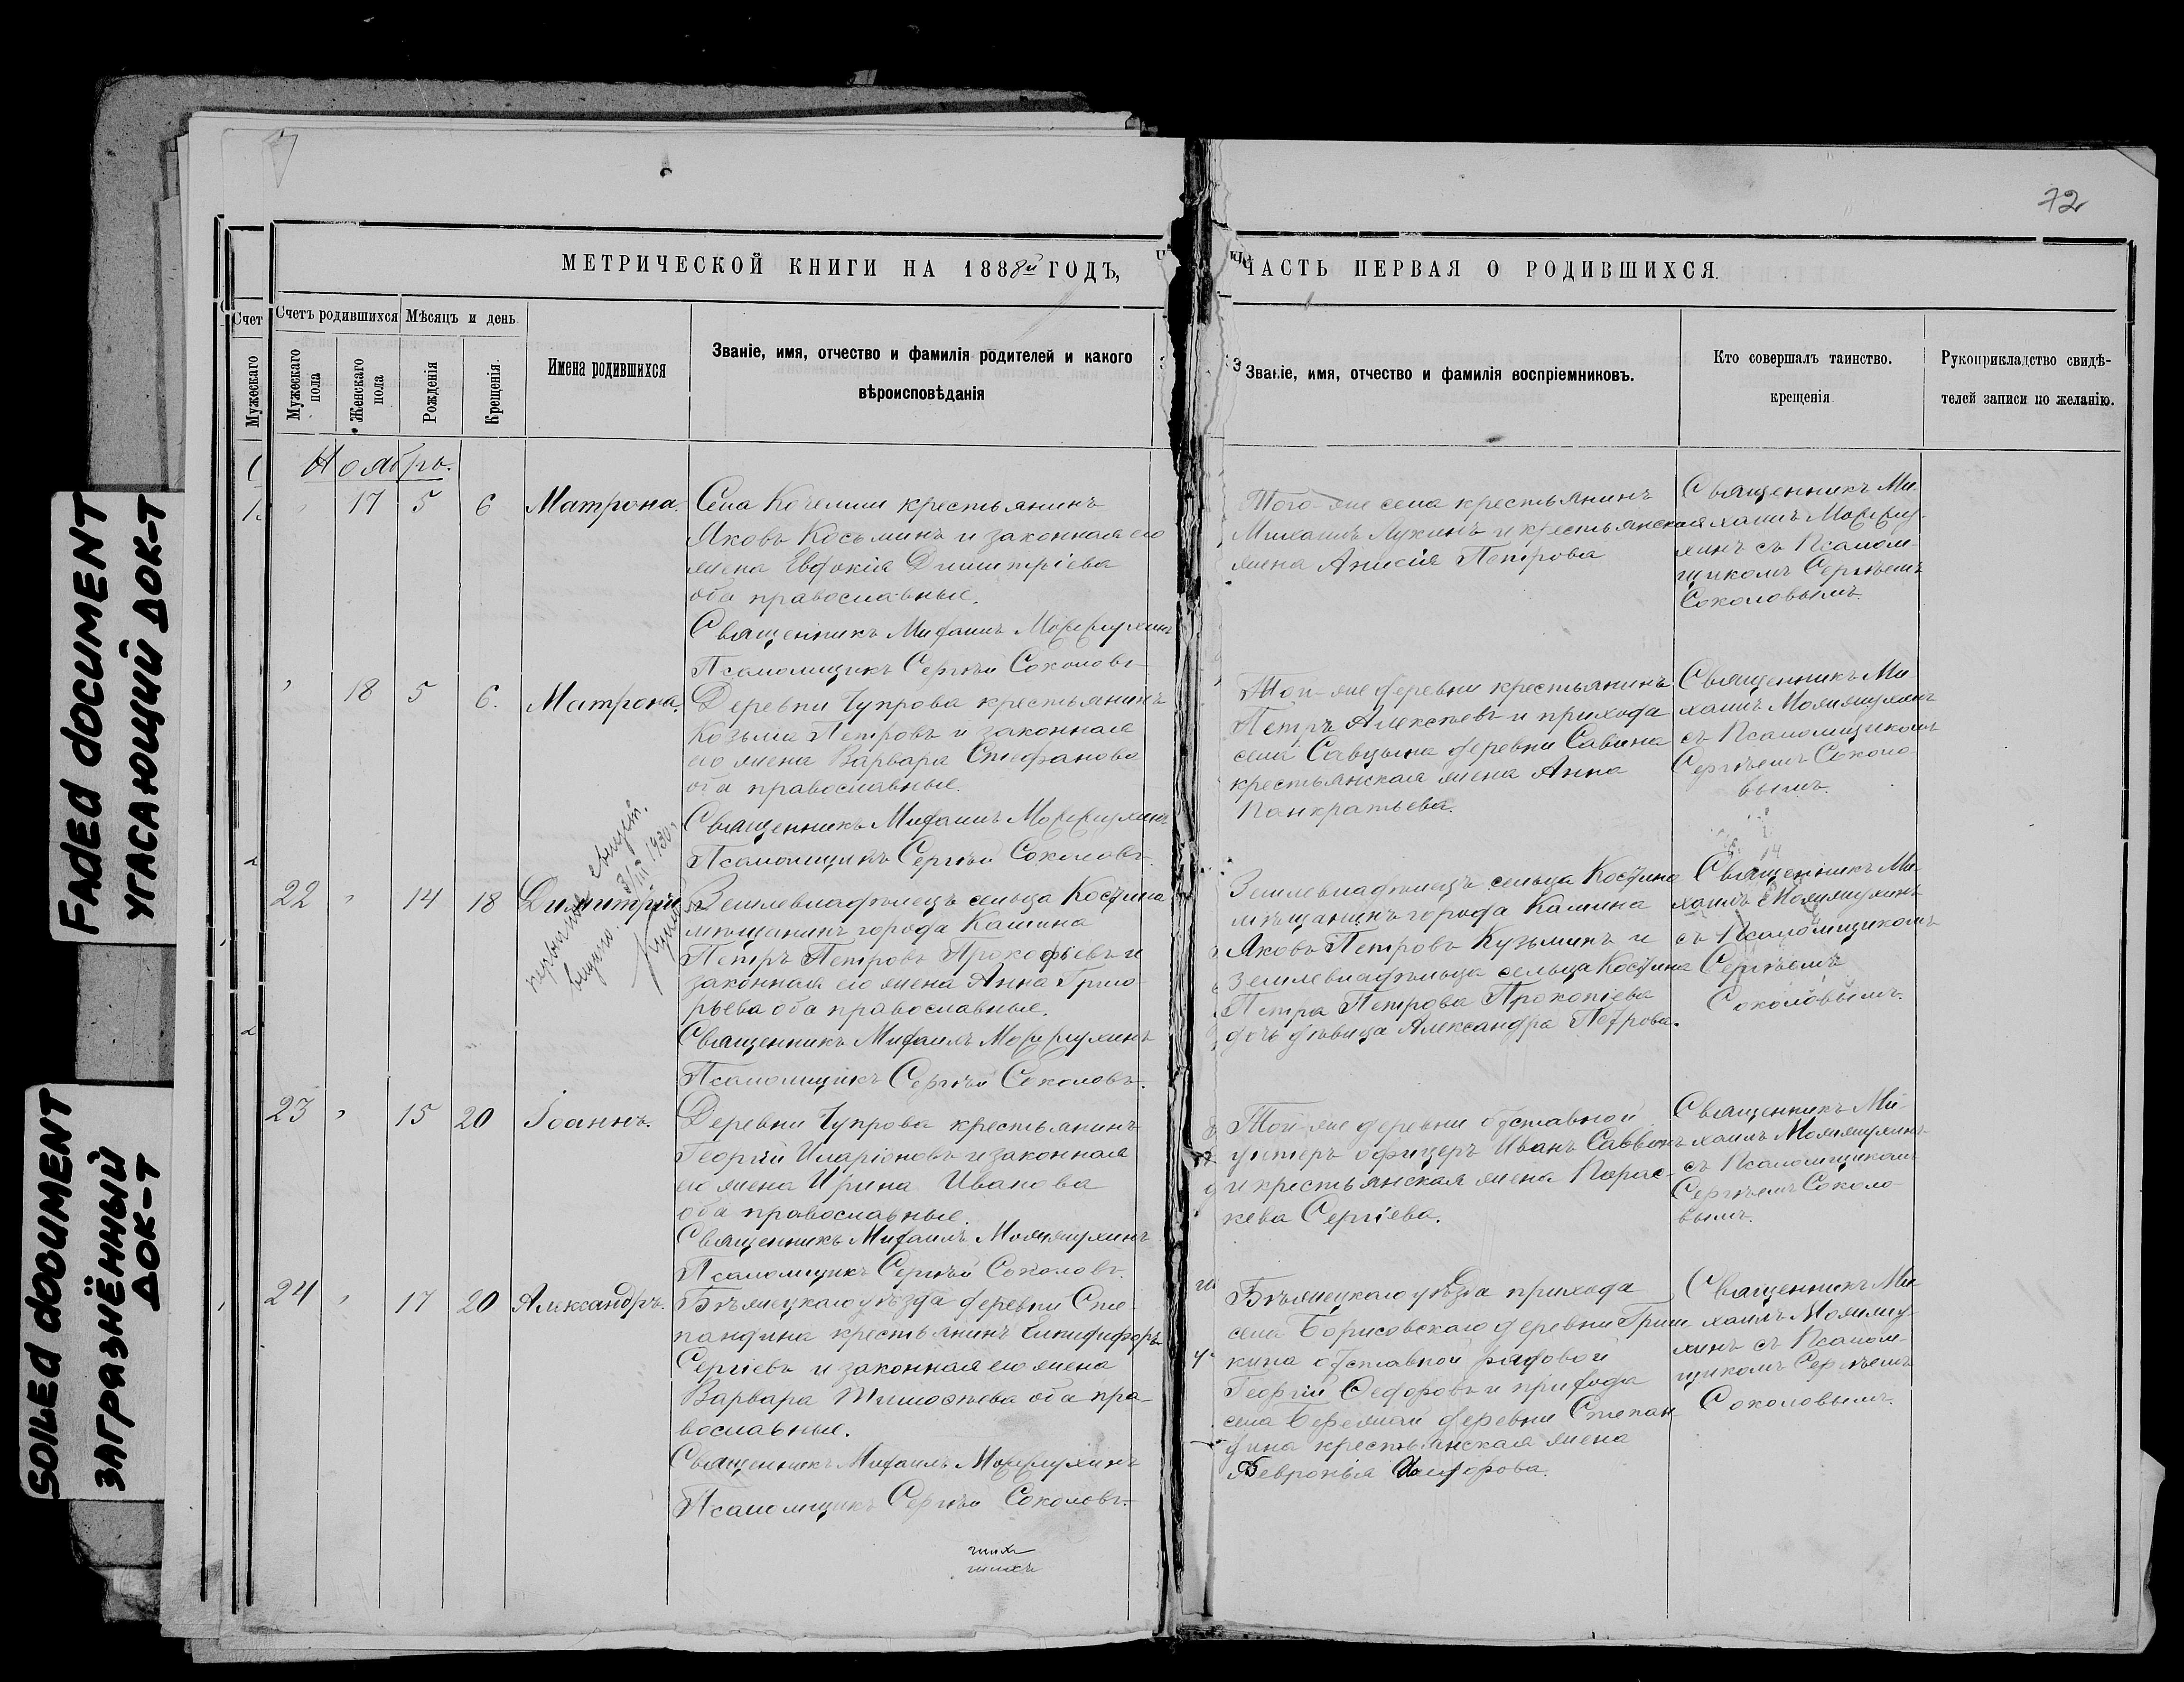 FADED DOCUMENT
УГАСАЮЩИЙ ДОК-Т
SOILED DOCUMENT
ЗАГРЯЗНЁННЫЙ
ДОК-Т
72
МЕТРИЧЕСКОЙ КНИГИ НА 1888й ГОДЪ,
ЧАСТЬ ПЕРВАЯ О РОДИВШИХСЯ.
Счет
Мужескаго
Счетъ родившихся
Мѣсяцъ и день
Мужескаго пола
Женскаго пола
Рожденія
Крещенія.
Имена родившихся
Званіе, имя, отчество и фамилія родителей и какого
вѣроисповѣданія
Званіе, имя, отчество и фамилія воспріемниковъ.
Кто совершалъ таинство.
крещенія
Рукоприкладство свидѣ-
телей записи по желанію.
Ноябрь.
17 5 6 Матрона.
Села крестьянинъ
Яковъ Косьминъ и законная его
жена Евдокія Димитріева
оба православные.
Священникъ Михаилъ
Псаломщикъ Сергѣй Соколовъ
Того-же села крестьянинъ
Михаилъ Лукинъ и крестьянская
жена Анисія Петрова
Священникъ Ми-
хаилъ
съ Псалом-
щикомъ Сергѣемъ
Соколовымъ.
18 5 6. Матрона.
Деревни Чупрова крестьянинъ
Козьма Петровъ и законная
его жена Варвара Стефанова
оба православные.
Священникъ Михаилъ
Псаломщикъ Сергѣй Соколовъ.
Той-же деревни крестьянинъ
Петръ Алексѣевъ и прихода
села Савцына деревни Савина
крестьянская жена Анна
Панкратьева.
Священникъ Ми-
хаилъ
съ Псаломщикомъ
Сергѣемъ Соколо-
вымъ.
22 14 18 Димитрій
1930
Землевладѣлецъ сельца
мѣщанинъ города Кашина
Петръ Петровъ Прокофьевъ и
законная его жена Анна Григо-
рьева оба православные.
Священникъ Михаилъ
Псаломщикъ Сергѣй Соколовъ.
Землевладѣлецъ сельца
мѣщанинъ города Кашина
Яковъ Петровъ Кузьминъ и
землевладѣльца сельца
Петра Петрова Прокопіева
дочь дѣвица Александра Петрова.
Священникъ Ми-
хаилъ
съ Псаломщикомъ
Сергѣемъ
Соколовымъ.
23 15 20 Іоаннъ.
Деревни Чупрова крестьянинъ
Георгій Иларіоновъ и законная
его жена Ирина Иванова
оба православные.
Священникъ Михаилъ
Псаломщикъ Сергѣй Соколовъ.
Той-же деревни отставной
унтеръ офицеръ Иванъ Саввинъ
и крестьянская жена Парас-
кева Сергіева.
Священникъ Ми-
хаилъ
съ Псаломщикомъ
Сергѣемъ Соколо-
вымъ.
24 17 20 Александръ.
Бѣжецкаго уѣзда деревни Сте-
пандина крестьянинъ
Сергіевъ и законная его жена
Варвара Тимоѳеева оба пра-
вославные.
Священникъ Михаилъ
Псаломщикъ Сергѣй Соколовъ.
Бѣжецкаго уѣзда прихода
села Борисовскаго деревни Гриш-
кина отставной рядовой
Георгій Ѳедоровъ и прихода
села деревни Степан-
дина крестьянская жена
Ѳевронія
Священникъ Ми-
хаилъ
съ Псалом-
щикомъ Сергѣемъ
Соколовымъ.